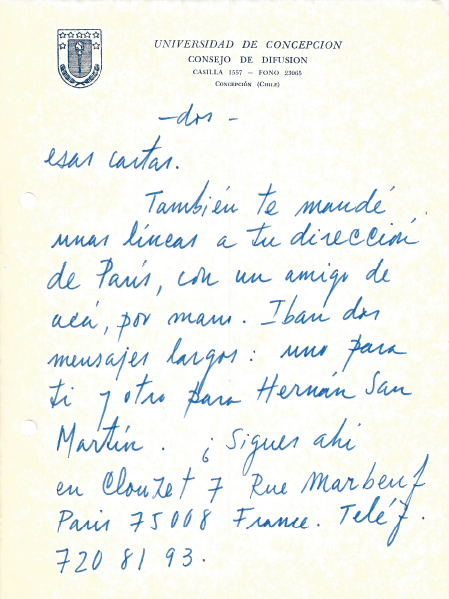 UNIVERSIDAD DE CONCEPCION
CONSEJO DE DIFUSION
CASILLA 1557 — FONO 23065
CONCEPCIÓN (CHILE)
- dos -
esas cartas.
También te mandé
unas líneas a tu dirección
de París, con un amigo de
acá, por mano. Iban dos
mensajes largos: uno para
ti y otro para Hernán San
Martín. ¿Sigues ahí
en Clouzet 7 Rue Marbeuf
Paris 75008 France. Teléf.
720 81 93.